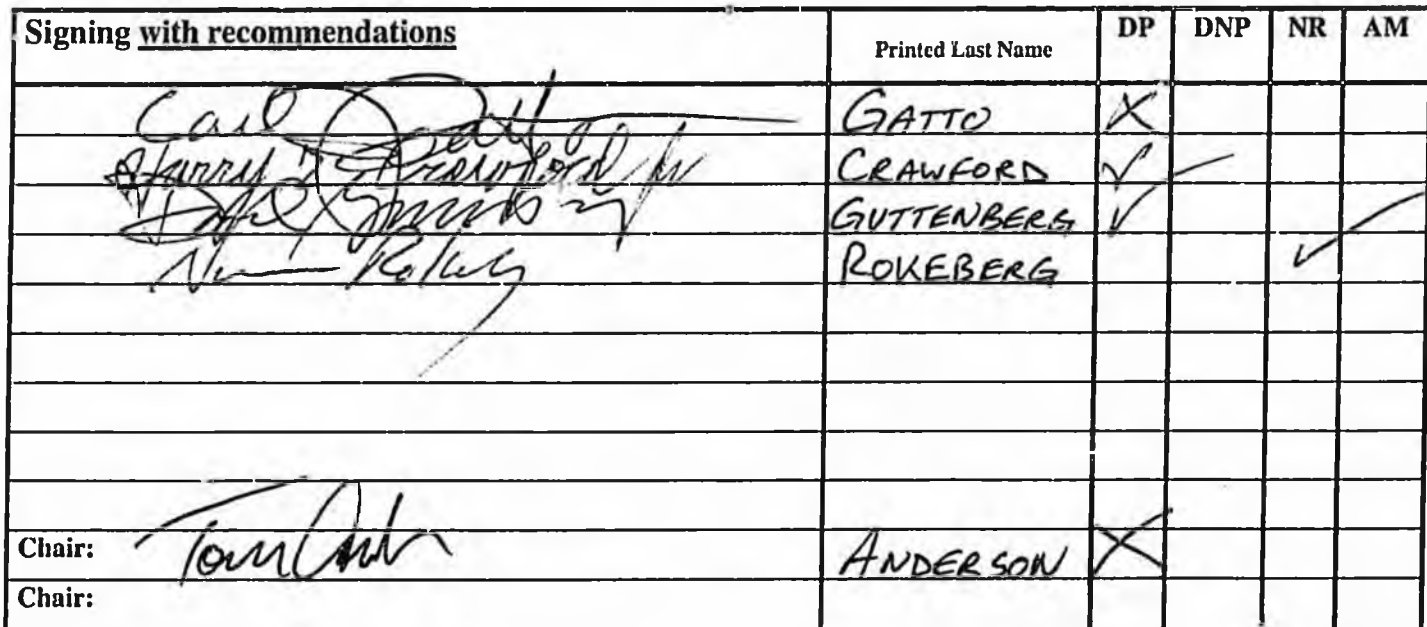 Signing with recommendations Printed Last Name DP DNP NR AM
Carl Gatto GATTO X
Harry Crawford Jr CRAWFORD ✓
GUTTENBERG ✓
Norman Rokeberg ROKEBERG ✓
Chair: Tom Anderson ANDERSON X
Chair: